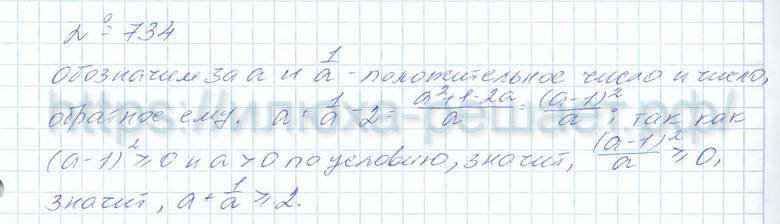 № 734
Обозначим за a и 1/a - положительное число и число,
обратное ему. a + 1/a - 2 = (a²+1-2a)/a = (a-1)²/a; так как
(a-1)² ≥ 0 и a > 0 по условию, значит, (a-1)²/a ≥ 0,
значит, a + 1/a ≥ 2.
https://илюха-решает.рф/